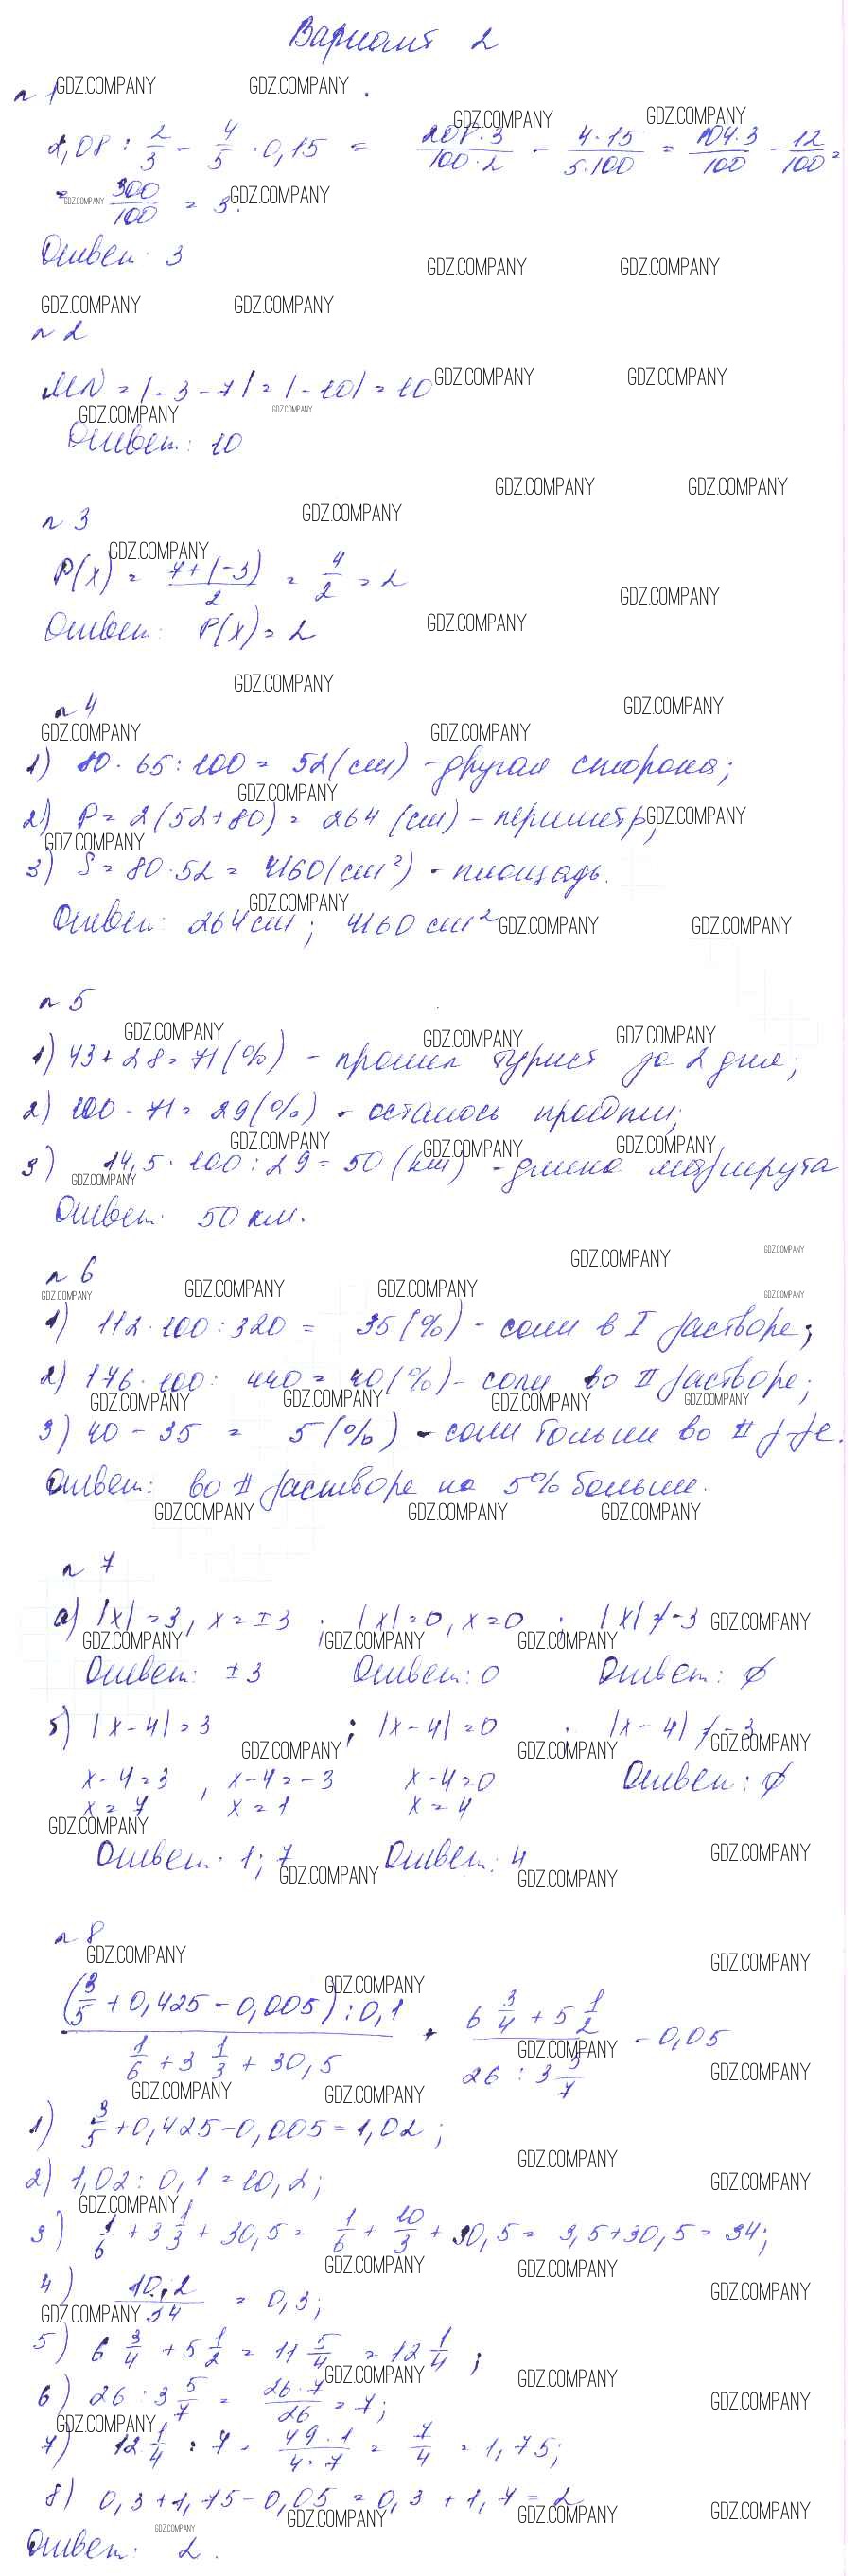 Вариант 2
n 1
2,08 : 2/3 - 4/5 · 0,15 = 208·3/100·2 - 4·15/5·100 = 104·3/100 - 12/100 =
= 300/100 = 3.
Ответ: 3
n 2
MN = |-3-7| = |-10| = 10
Ответ: 10
n 3
P(x) = 7+(-3)/2 = 4/2 = 2
Ответ: P(x) = 2
n 4
1) 80 · 65 : 100 = 52 (см) - другая сторона;
2) P = 2(52+80) = 264 (см) - периметр;
3) S = 80 · 52 = 4160 (см²) - площадь.
Ответ: 264 см; 4160 см²
n 5
1) 43 + 28 = 71 (%) - прошел турист за 2 дня;
2) 100 - 71 = 29 (%) - осталось пройти;
3) 14,5 · 100 : 29 = 50 (км) - длина маршрута
Ответ: 50 км.
n 6
1) 112 · 100 : 320 = 35 (%) - соли в I растворе;
2) 176 · 100 : 440 = 40 (%) - соли во II растворе;
3) 40 - 35 = 5 (%) - соли больше во II р-ре.
Ответ: во II растворе на 5% больше.
n 7
а) |x| = 3, x = ±3 ; |x| = 0, x = 0 ; |x| ≠ -3
Ответ: ±3 Ответ: 0 Ответ: ∅
б) |x-4| = 3 ; |x-4| = 0 ; |x-4| ≠ -3
x-4=3 , x-4=-3 x-4=0 Ответ: ∅
x=7 x=1 x=4
Ответ: 1; 7 Ответ: 4
n 8
(3/5 + 0,425 - 0,005) : 0,1 / 1/6 + 3 1/3 + 30,5 + 6 3/4 + 5 1/2 / 26 : 3 5/7 - 0,05
1) 3/5 + 0,425 - 0,005 = 1,02;
2) 1,02 : 0,1 = 10,2;
3) 1/6 + 3 1/3 + 30,5 = 1/6 + 10/3 + 30,5 = 3,5 + 30,5 = 34;
4) 10,2/34 = 0,3;
5) 6 3/4 + 5 1/2 = 11 5/4 = 12 1/4;
6) 26 : 3 5/7 = 26·7/26 = 7;
7) 12 1/4 : 7 = 49·1/4·7 = 7/4 = 1,75;
8) 0,3 + 1,75 - 0,05 = 0,3 + 1,7 = 2
Ответ: 2.